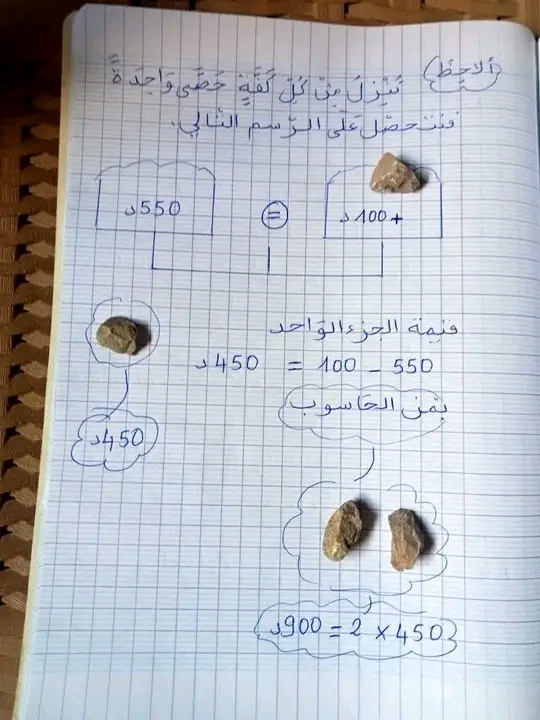 ألاحظ) نُنْزِلُ مِنْ كُلِّ كُفَّةٍ حَصًى وَاحِدَةً
فنتحصّل عَلَى الرّسم التّالي.
+100د = 550د
قيمة الجزء الوَاحد
550 - 100 = 450د
450د
ثمن الحَاسوب
450 × 2 = 900د